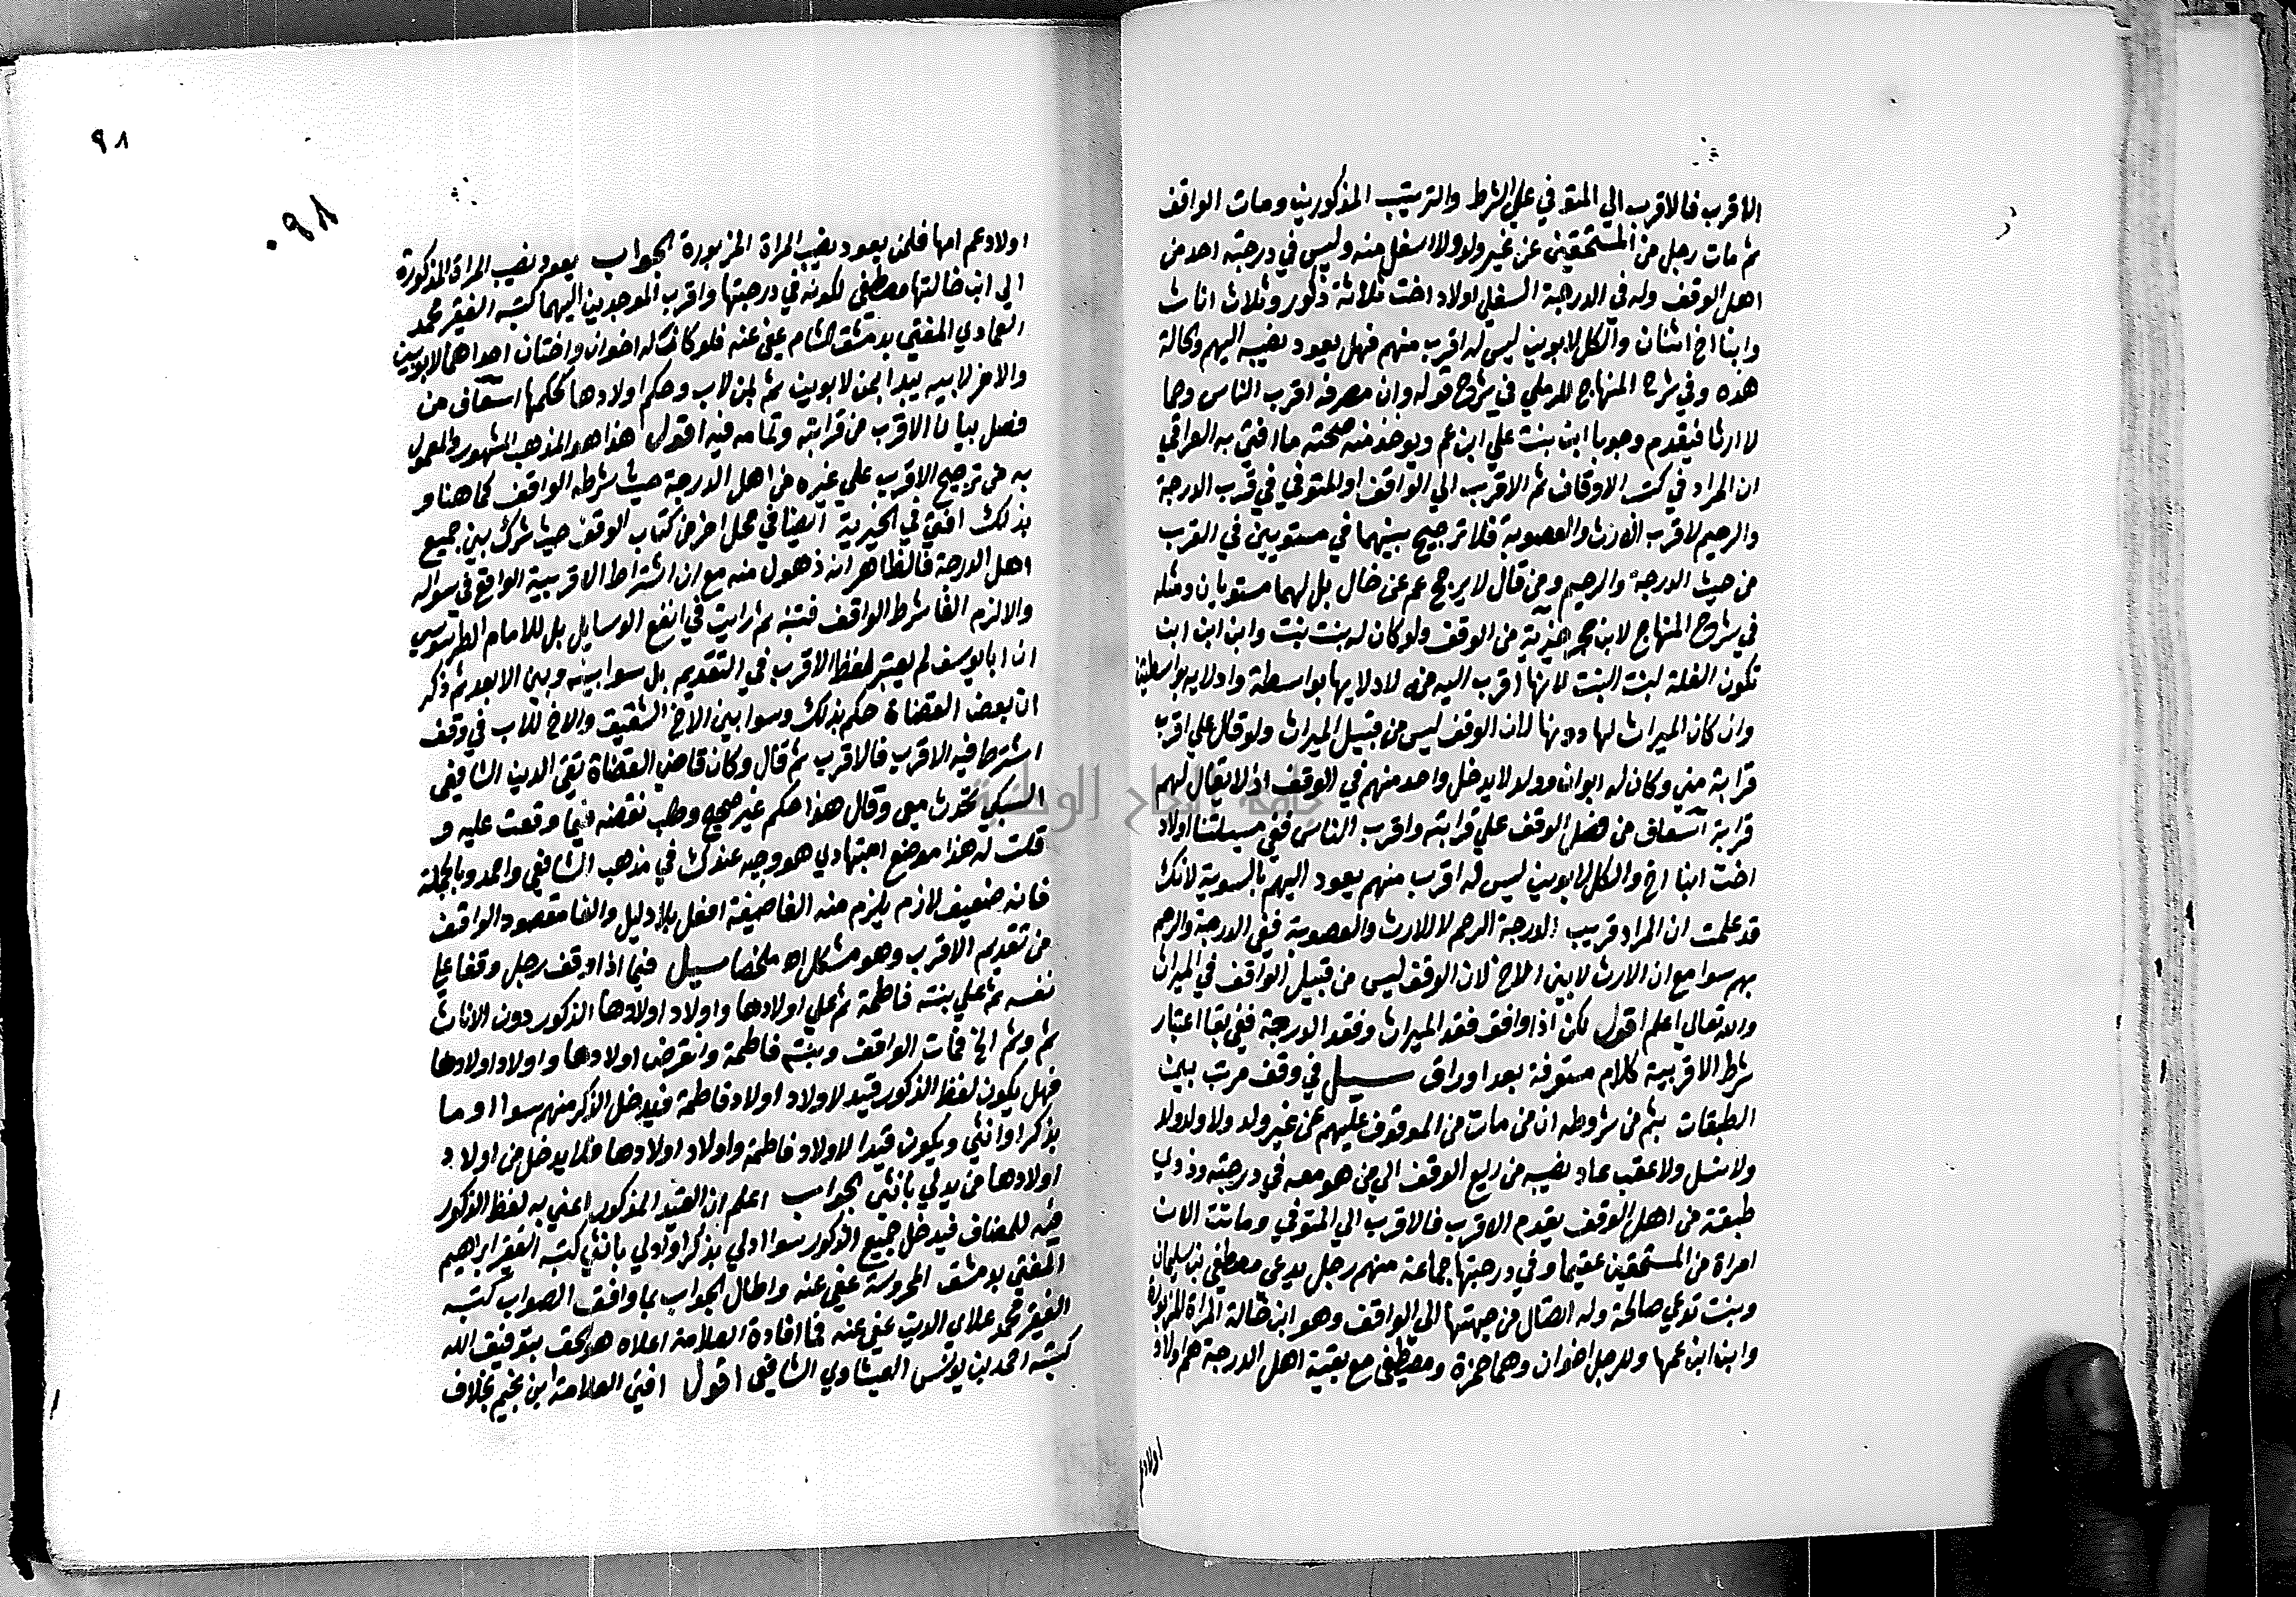 الاقرب فالاقرب الي المتوفي علي الشرط والترتيب المذكورين ومات الواقف
ثم مات رجل من المستحقين عن غير ولد ولا اسفل منه وليس في درجته احد من
اهل الوقف وله في الدرجة السفلي اولاد اخت ثلاثة ذكور وثلاث اناث
وابنا اخ اثنان والكل لابوين ليس له اقرب منهم فهل يعود نصيبه اليهم وكالة
هذه وفي شرح المنهاج للرملي في شروح قوله وان مصرفه اقرب الناس رحما
لا ارثا فيقدم وجوبا ابن بنت علي ابن عم ويوخذ منه صحته ما افتي به العراقي
ان المراد في كتب الاوقاف ثم الاقرب الي الواقف او المتوفي في قرب الدرجة
والرحم لا قرب الارث والعصوبة فلا ترجيح بينهما في مستويين في القرب
من حيث الدرجة والرحم ومن قال لا يرجح عم عن خال بل لهما مستويان ومثله
في شرح المنهاج لابن حجر من الوقف ولو كان له بنت بنت وابن ابن ابن
تكون الغلة لبنت البنت لانها اقرب اليه منه لادلايها بواسطة وادلايه بواسطتين
وان كان الميراث لها دونها لان الوقف ليس من قبيل الميراث ولو قال علي اقرب
قرابة مني وكان له ابوان وولد لا يدخل واحد منهم في الوقف اذ لا يقال لهم
قرابة اسعاف من فصل الوقف علي قرابته واقرب الناس ففي مسيلتنا اولاد
اخت ابنا اخ والكل لابوين ليس له اقرب منهم يعود اليهم بالسوية لانك
قد علمت ان المراد قريب الدرجة الرحم لا للارث والعصوبة ففي الدرجة والرحم
بهم سوا مع ان الارث لابني الاخ لان الوقف ليس من قبيل الواقف في الميراث
والله تعالي اعلم اقول لكن اذا وافق فقد الميراث وفقد الدرجة ففي بقا اعتبار
شرط الاقربية كلام ستعرفه بعد اوراق سيل في وقف مرتب بين
الطبقات بثم من شروطه ان من مات من الموقوف عليهم عن غير ولد ولا ولد ولد
ولا نسل ولا عقب عاد نصيبه من ريع الوقف الي من هو معه في درجته وذوي
طبقته من اهل الوقف يقدم الاقرب فالاقرب الي المتوفي وماتت الان
امراة من المستحقين عقيما وفي درجتها جماعة منهم رجل يدعى مصطفي بن سليمان
وبنت تدعي صالحة وله اتصال من جهتها الى الواقف وهو ابن خالة المراة المزبورة
وابن ابن عمها وللرجل اخوان وهما حمزة ومصطفى مع بقية اهل الدرجة هم اولاد
اولاد عم
٩٨
٠٩٨
اولاد عم امها فلمن يعود نصيب المراة المزبورة الجواب يعود نصيب المراة المذكورة
الي ابن خالتها مصطفي لكونه في درجتها واقرب الموجودين اليهما كتبه الفقير محمد
العمادي المفتي بدمشق الشام عفي عنه فلو كان له اخوان واختان احداهما لابوين
والاخر لابيه يبدا بمن لابوين ثم بمن لاب وحكم اولادها كحكمها اسعاف من
فصل بيان الاقرب من قرابته وتمامه فيه اقول هذا هو المذهب المشهور والمعمول
به من ترجيح الاقرب علي غيره من اهل الدرجة حيث شرطه الواقف كما هنا و
بذلك افتي في الخيرية ايضا في محل اخر من كتاب الوقف حيث شرك بين جميع
اهل الدرجة فالظاهر انه ذهول منه مع ان اشتراط الاقربية الواقع في سواله
والا لزم الغا شرط الواقف فتنبه ثم رايت في انفع الوسايل بل للامام الطرسوسي
ان ابا يوسف لم يعتبر لفظ الاقرب في التقديم بل سوا بينه وبين الابعد ثم ذكر
ان بعض القضاة حكم بذلك وسوا بين الاخ الشقيق والاخ للاب في وقف
اشترط فيه الاقرب فالاقرب ثم قال وكان قاضي القضاة تقي الدين الشافعي
السبكي تحدث معي وقال هذا حكم غير صحيح وطلب نقضه فيما وقعت عليه و
قلت له هذا موضع اجتهادي هو وجيه عندك في مذهب الشافعي واحمد وبالجملة
فانه ضعيف لازم يلزم منه الغا صيغة افعل بلا دليل والغا مقصود الواقف
من تقديم الاقرب وهو مشكل اه ملخصا سيل فيما اذا وقف رجل وقفا علي
نفسه ثم علي بنته فاطمة ثم علي اولادها واولاد اولادها الذكور دون الاناث
ثم وثم الخ فمات الواقف وبنته فاطمة وانقرض اولادها واولاد اولادها
فهل يكون لفظ الذكور قيد لاولاد اولاد فاطمة فيدخل الذكر منهم سوا ادما
بذكر او انثي ويكون قيدا لاولاد فاطمة واولاد اولادها فلا يدخل من اولاد
اولادها من يدلي بانثي الجواب اعلم ان القيد المذكور اعني به لفظ الذكور
للمضاف فيدخل جميع الذكور سوا ادلي بذكر او ادلي بانثي كتبه الفقير ابراهيم
المفتي بدمشق المحروسة عفي عنه واطال الجواب بما وافق الصواب كتبه
الفقير محمد علاي الدين عفي عنه فما افادة العلامة اعلاه هو الحق بتوفيق الله
كتبه احمد بن يونس العيثاوي الشافعي اقول افتي العلامة ابن نجيم بخلاف